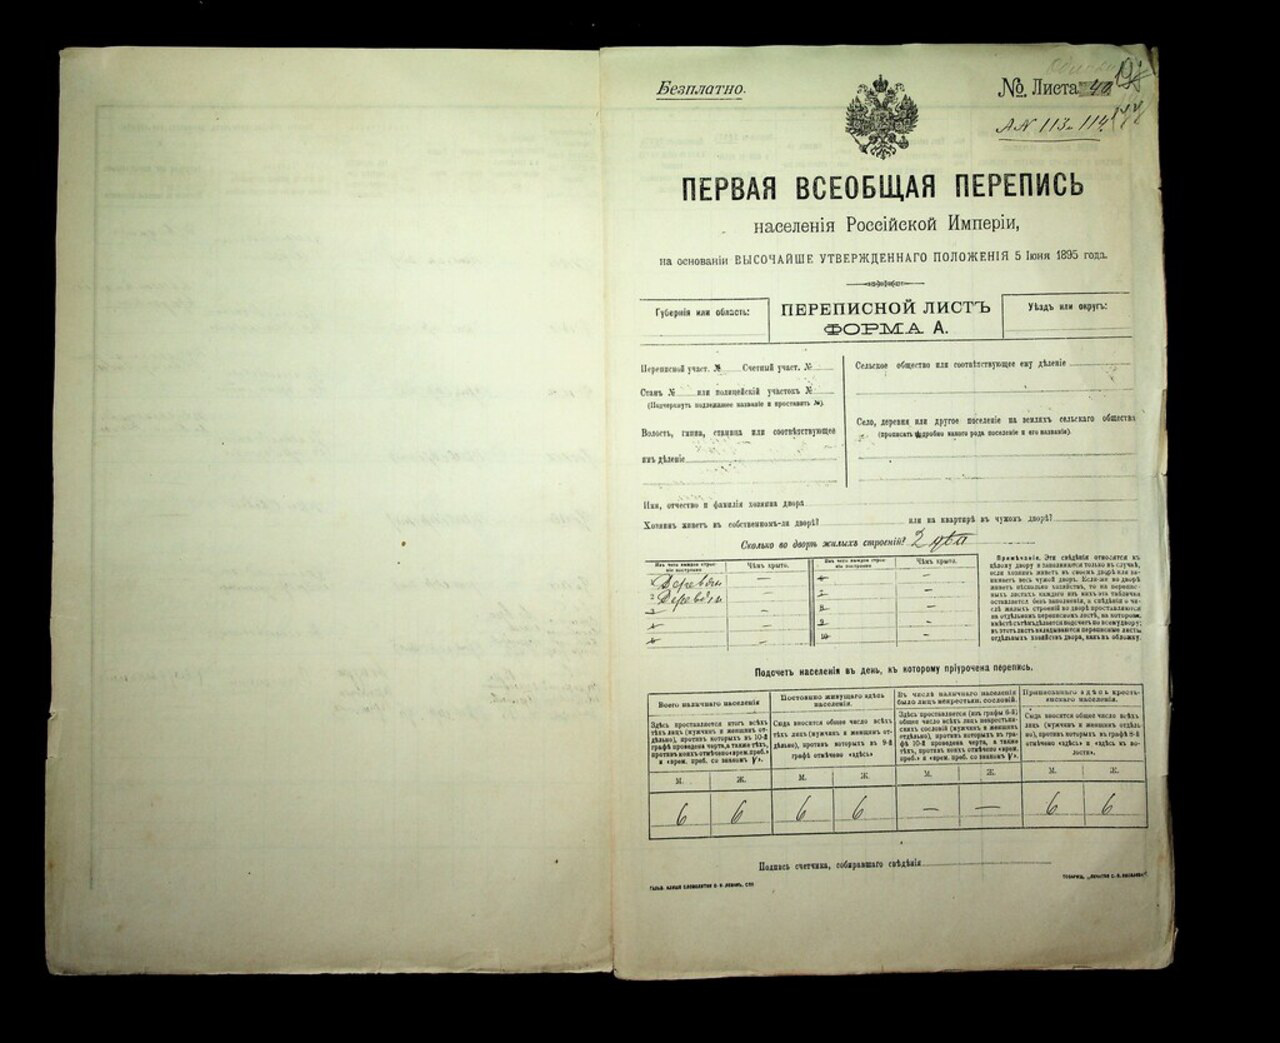 Безплатно.
№ Листа 40
АN 113 и 114
ПЕРВАЯ ВСЕОБЩАЯ ПЕРЕПИСЬ
населенія Россійской Имперіи,
на основаніи ВЫСОЧАЙШЕ УТВЕРЖДЕННАГО ПОЛОЖЕНІЯ 5 Іюня 1895 года.
Губернія или область:
ПЕРЕПИСНОЙ ЛИСТЪ
ФОРМА А.
Уѣздъ или округъ:
Переписной участ. № Счетный участ. №
Станъ № или полицейскій участокъ №
(Подчеркнуть подлежащее названіе и проставить №).
Волость, гмина, станица или соотвѣтствующее
имъ дѣленіе
Сельское общество или соотвѣтствующее ему дѣленіе
Село, деревня или другое поселеніе на земляхъ сельскаго общества
(прописать подробно какого рода поселеніе и его названіе).
Имя, отчество и фамилія хозяина двора
Хозяинъ живетъ въ собственномъ-ли дворѣ? или на квартирѣ въ чужомъ дворѣ?
Сколько во дворѣ жилыхъ строеній? 2 два
Изъ чего каждое строе-
ніе построено
Чѣмъ крыто.
Изъ чего каждое строе-
ніе построено
Чѣмъ крыто.
1 Деревян
2 Деревян
3
4
5
6
7
8
9
10
Примѣчаніе. Эти свѣдѣнія относятся къ
цѣлому двору и заполняются только въ случаѣ,
если хозяинъ живетъ въ своемъ дворѣ или за-
нимаетъ весь чужой дворъ. Если-же во дворѣ
живетъ нѣсколько хозяйствъ, то на перепис-
ныхъ листахъ каждаго изъ нихъ эта табличка
оставляется безъ заполненія, а свѣдѣнія о чи-
слѣ жилыхъ строеній во дворѣ проставляются
на отдѣльномъ переписномъ листѣ, на которомъ
вмѣстѣ съ тѣмъ дѣлается подсчетъ по всему двору;
въ этотъ листъ вкладываются переписные листы
отдѣльныхъ хозяйствъ двора, какъ въ обложку.
Подсчетъ населенія въ день, къ которому пріурочена перепись.
Всего наличнаго населенія
Здѣсь проставляется итогъ всѣхъ
тѣхъ лицъ (мужчинъ и женщинъ от-
дѣльно), противъ которыхъ въ 10-й
графѣ проведена черта, а также тѣхъ,
противъ коихъ отмѣчено «врем. преб.»
и «врем. преб. со знакомъ V».
Постоянно живущаго здѣсь
населенія.
Сюда вносится общее число всѣхъ
тѣхъ лицъ (мужчинъ и женщинъ от-
дѣльно), противъ которыхъ въ 9-й
графѣ отмѣчено «здѣсь»
Въ числѣ наличнаго населенія
было лицъ некрестьян. сословій.
Здѣсь проставляется (изъ графы 6-й)
общее число всѣхъ лицъ некрестьян-
скихъ сословій (мужчинъ и женщинъ
отдѣльно), противъ которыхъ въ гра-
фѣ 10-й проведена черта, а также
тѣхъ, противъ коихъ отмѣчено «врем.
преб.» и «врем. преб. со знакомъ V».
Приписаннаго здѣсь кресть-
янскаго населенія.
Сюда вносится общее число всѣхъ
лицъ (мужчинъ и женщинъ отдѣль-
но), противъ которыхъ въ графѣ 8-й
отмѣчено «здѣсь» и «здѣсь въ во-
лости».
М. Ж. М. Ж. М. Ж. М. Ж.
6 6 6 6 — — 6 6
Подпись счетчика, собиравшаго свѣдѣнія